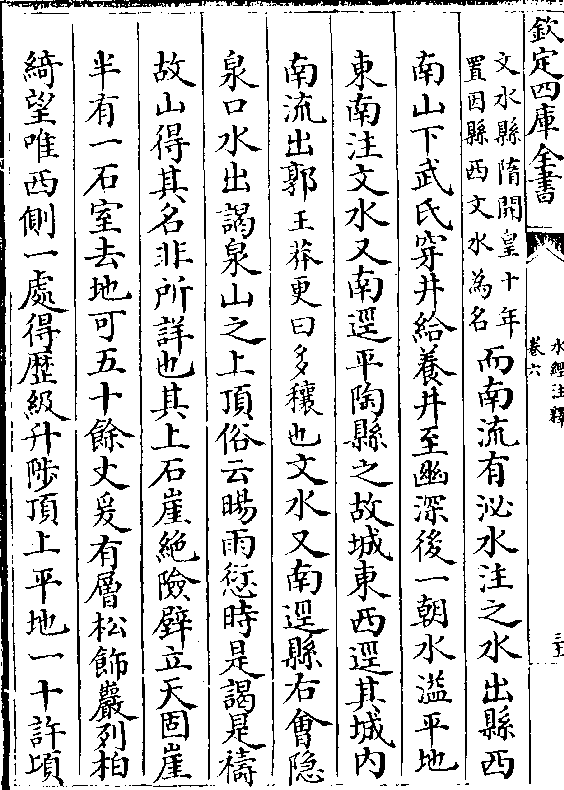 欽定四庫全書
水經注釋
卷六
三五
文水縣隋開皇十年
置因縣西文水為名
而南流有泌水注之水出縣西
南山下武氏穿井給養井至幽深後一朝水溢平地
東南注文水又南逕平陶縣之故城東西逕其城内
南流出郭王莽更曰多穰也文水又南逕縣右會隐
泉口水出謁泉山之上頂俗云暘雨愆時是謁是禱
故山得其名非所詳也其上石崖絶險壁立天固崖
半有一石室去地可五十餘丈爰有層松飾巖列柏
綺望唯西側一處得歴級升陟頂上平地一十許頃